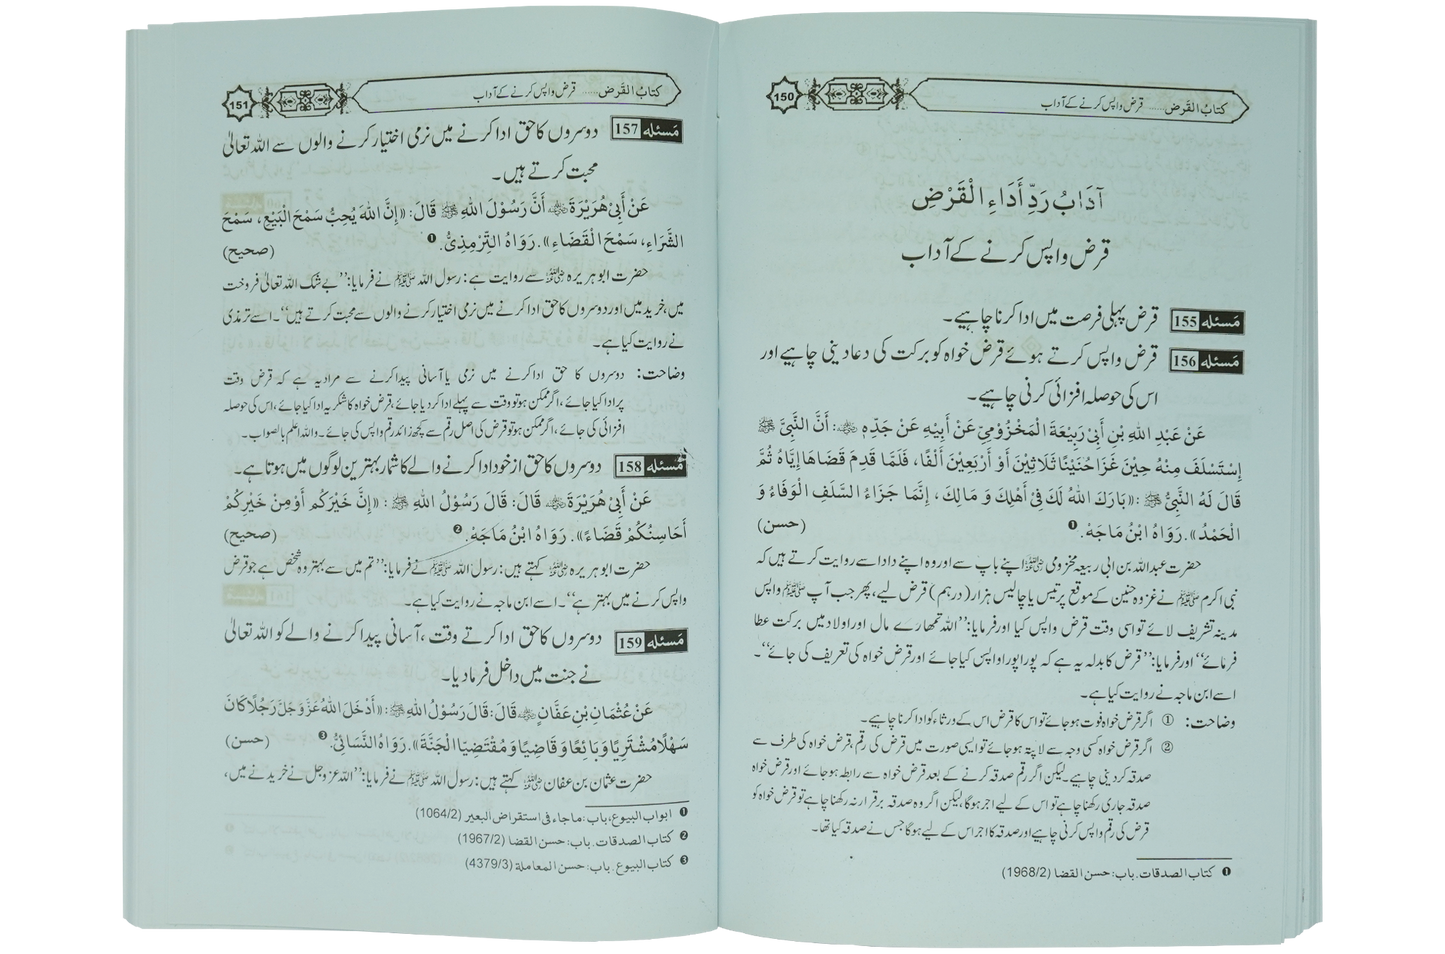 کتابُ القَرض...... قرض واپس کرنے کے آداب
150
آدَابُ رَدِّ أَدَاءِ الْقَرْضِ
قرض واپس کرنے کے آداب
مَسئلہ 155 قرض پہلی فرصت میں ادا کرنا چاہیے۔
مَسئلہ 156 قرض واپس کرتے ہوئے قرض خواہ کو برکت کی دعا دینی چاہیے اور
اس کی حوصلہ افزائی کرنی چاہیے۔
عَنْ عَبْدِ اللهِ بْنِ أَبِيْ رَبِيْعَةَ الْمَخْزُوْمِيِّ عَنْ أَبِيْهِ عَنْ جَدِّهٖ ؓ: أَنَّ النَّبِيَّ ﷺ
إِسْتَسْلَفَ مِنْهُ حِيْنَ غَزَا حُنَيْنًا ثَلَاثِيْنَ أَوْ أَرْبَعِيْنَ أَلْفًا، فَلَمَّا قَدِمَ قَضَاهَا إِيَّاهُ ثُمَّ
قَالَ لَهُ النَّبِيُّ ﷺ: «بَارَكَ اللهُ لَكَ فِيْ أَهْلِكَ وَ مَالِكَ، إِنَّمَا جَزَاءُ السَّلَفِ الْوَفَاءُ وَ
الْحَمْدُ». رَوَاهُ ابْنُ مَاجَهْ. ❶ (حسن)
حضرت عبداللہ بن ابی ربیعہ مخزومی ؓ اپنے باپ سے اور وہ اپنے دادا سے روایت کرتے ہیں کہ
نبی اکرم ﷺ نے غزوہ حنین کے موقع پر تیس یا چالیس ہزار (درہم) قرض لیے، پھر جب آپ ﷺ واپس
مدینہ تشریف لائے تو اسی وقت قرض واپس کیا اور فرمایا: ’’اللہ تمھارے مال اور اولاد میں برکت عطا
فرمائے‘‘ اور فرمایا: ’’قرض کا بدلہ یہ ہے کہ پورا پورا واپس کیا جائے اور قرض خواہ کی تعریف کی جائے‘‘۔
اسے ابن ماجہ نے روایت کیا ہے۔
وضاحت: ① اگر قرض خواہ فوت ہو جائے تو اس کا قرض اس کے ورثاء کو ادا کرنا چاہیے۔
② اگر قرض خواہ کسی وجہ سے لاپتہ ہو جائے تو ایسی صورت میں قرض کی رقم، قرض خواہ کی طرف سے
صدقہ کر دینی چاہیے۔ لیکن اگر رقم صدقہ کرنے کے بعد قرض خواہ سے رابطہ ہو جائے اور قرض خواہ
صدقہ جاری رکھنا چاہے تو اس کے لیے اجر ہوگا، لیکن اگر وہ صدقہ برقرار نہ رکھنا چاہے تو قرض خواہ کو
قرض کی رقم واپس کرنی چاہیے اور صدقہ کا اجر اس کے لیے ہوگا جس نے صدقہ کیا تھا۔
❶ کتاب الصدقات. باب: حسن القضا (1968/2)
کتابُ القَرض...... قرض واپس کرنے کے آداب
151
مَسئلہ 157 دوسروں کا حق ادا کرنے میں نرمی اختیار کرنے والوں سے اللہ تعالیٰ
محبت کرتے ہیں۔
عَنْ أَبِيْ هُرَيْرَةَ ؓ أَنَّ رَسُوْلَ اللهِ ﷺ قَالَ: «إِنَّ اللهَ يُحِبُّ سَمْحَ الْبَيْعِ، سَمْحَ
الشِّرَاءِ، سَمْحَ الْقَضَاءِ». رَوَاهُ التِّرْمِذِيُّ. ❶ (صحیح)
حضرت ابو ہریرہ ؓ سے روایت ہے: رسول اللہ ﷺ نے فرمایا: ’’بے شک اللہ تعالیٰ فروخت
میں، خرید میں اور دوسروں کا حق ادا کرنے میں نرمی اختیار کرنے والوں سے محبت کرتے ہیں‘‘۔ اسے ترمذی
نے روایت کیا ہے۔
وضاحت: دوسروں کا حق ادا کرنے میں نرمی یا آسانی پیدا کرنے سے مراد یہ ہے کہ قرض وقت
پر ادا کیا جائے، اگر ممکن ہو تو وقت سے پہلے ادا کر دیا جائے، قرض خواہ کا شکریہ ادا کیا جائے، اس کی حوصلہ
افزائی کی جائے، اگر ممکن ہو تو قرض کی اصل رقم سے کچھ زائد رقم واپس کی جائے۔ واللہ اعلم بالصواب۔
مَسئلہ 158 دوسروں کا حق از خود ادا کرنے والے کا شمار بہترین لوگوں میں ہوتا ہے۔
عَنْ أَبِيْ هُرَيْرَةَ ؓ قَالَ: قَالَ رَسُوْلُ اللهِ ﷺ: «إِنَّ خَيْرَكُمْ أَوْ مِنْ خَيْرِكُمْ
أَحَاسِنُكُمْ قَضَاءً». رَوَاهُ ابْنُ مَاجَهْ. ❷ (صحیح)
حضرت ابو ہریرہ ؓ کہتے ہیں: رسول اللہ ﷺ نے فرمایا: ’’تم میں سے بہتر وہ شخص ہے جو قرض
واپس کرنے میں بہتر ہے‘‘۔ اسے ابن ماجہ نے روایت کیا ہے۔
مَسئلہ 159 دوسروں کا حق ادا کرتے وقت، آسانی پیدا کرنے والے کو اللہ تعالیٰ
نے جنت میں داخل فرما دیا۔
عَنْ عُثْمَانَ بْنِ عَفَّانٍ ؓ قَالَ: قَالَ رَسُوْلُ اللهِ ﷺ: «أَدْخَلَ اللهُ عَزَّوَجَلَّ رَجُلًا كَانَ
سَهْلًا مُشْتَرِيًا وَ بَائِعًا وَ قَاضِيًا وَ مُقْتَضِيًا الْجَنَّةَ». رَوَاهُ النَّسَائِيُّ. ❸ (حسن)
حضرت عثمان بن عفان ؓ کہتے ہیں: رسول اللہ ﷺ نے فرمایا: ’’اللہ عزوجل نے خریدنے میں،
❶ ابواب البیوع، باب: ماجاء فی استقراض البعیر (1064/2)
❷ کتاب الصدقات. باب: حسن القضا (1967/2)
❸ کتاب البیوع. باب: حسن المعاملة (4379/3)